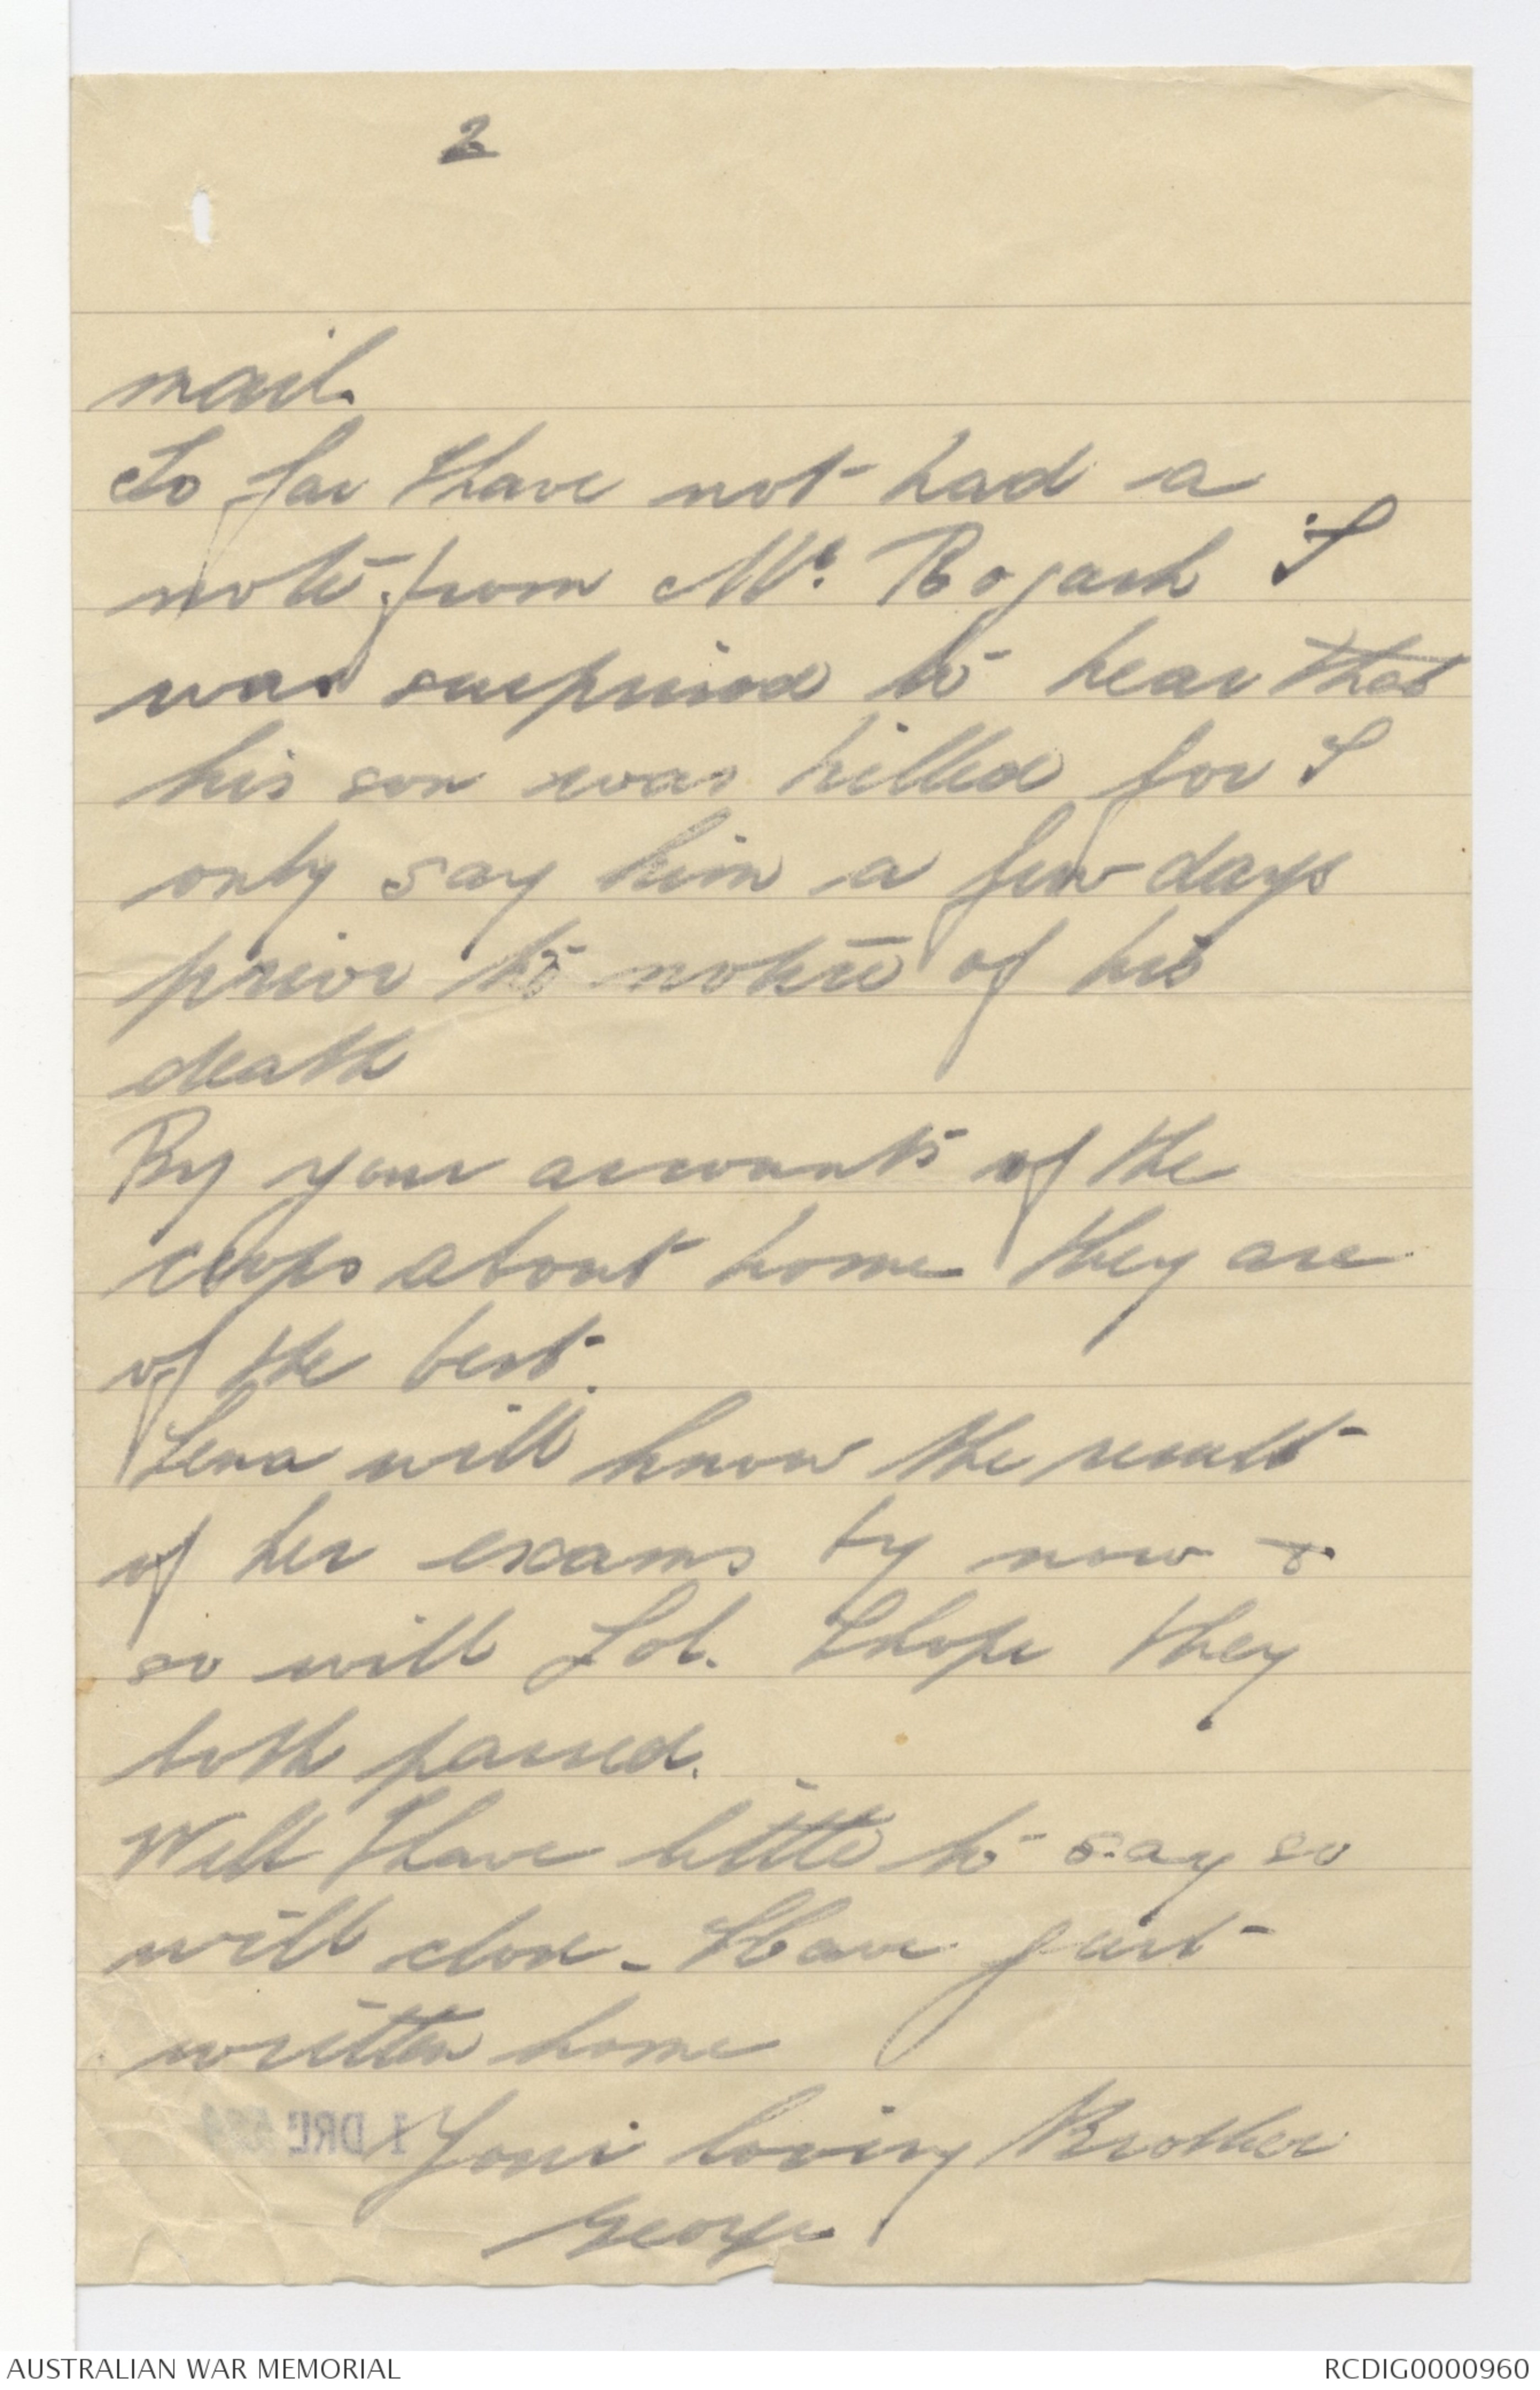 2
mail.
So far I have not had a
note from Mr. Bogach I
was surprised to hear that
his son was killed for I
only say him a few days
prior to notice of his
death
By your accounts of the
crops about home they are
of the best.
Lena will know the result
of her exams by now &
so will Lol. I hope they
both passed.
Well I have little to say so
will close - Have just
written home
1 DRL
Your loving Brother
George
AUSTRALIAN WAR MEMORIAL
RCDIG0000960